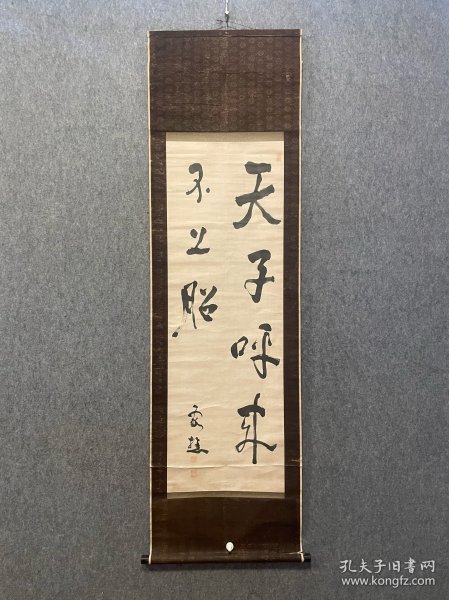 天子呼来
不上船
孔夫子旧书网
www.kongfz.com